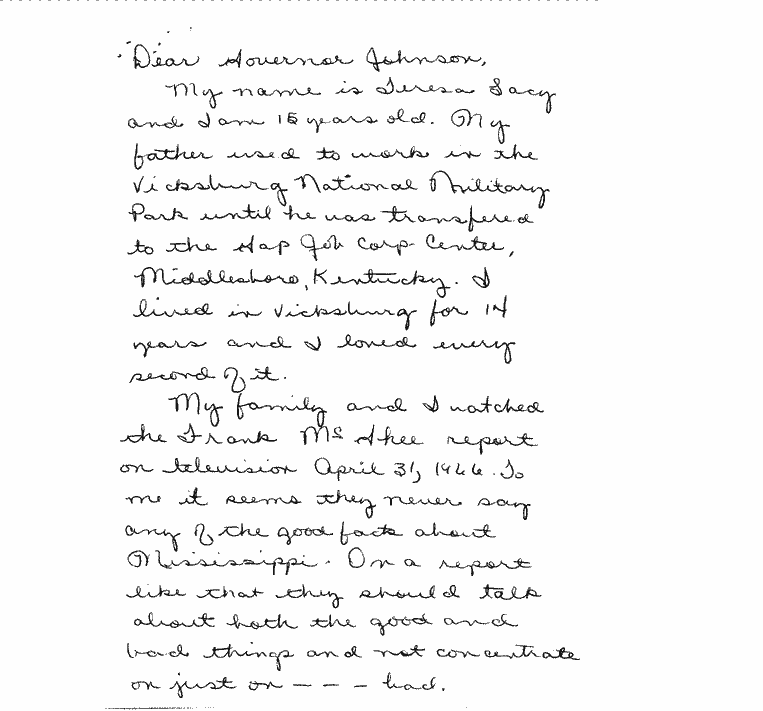 Dear Governor Johnson,
My name is Teresa Lacy
and I am 15 years old. My
father used to work in the
Vicksburg National Military
Park until he was transfered
to the Gap Job Corp Center,
Middlesboro, Kentucky. I
lived in Vicksburg for 14
years and I loved every
second of it.
My family and I watched
the Frank McGhee report
on television April 31, 1966. To
me it seems they never say
any of the good facts about
Mississippi. On a report
like that they should talk
about both the good and
bad things and not concentrate
on just on - - - bad.